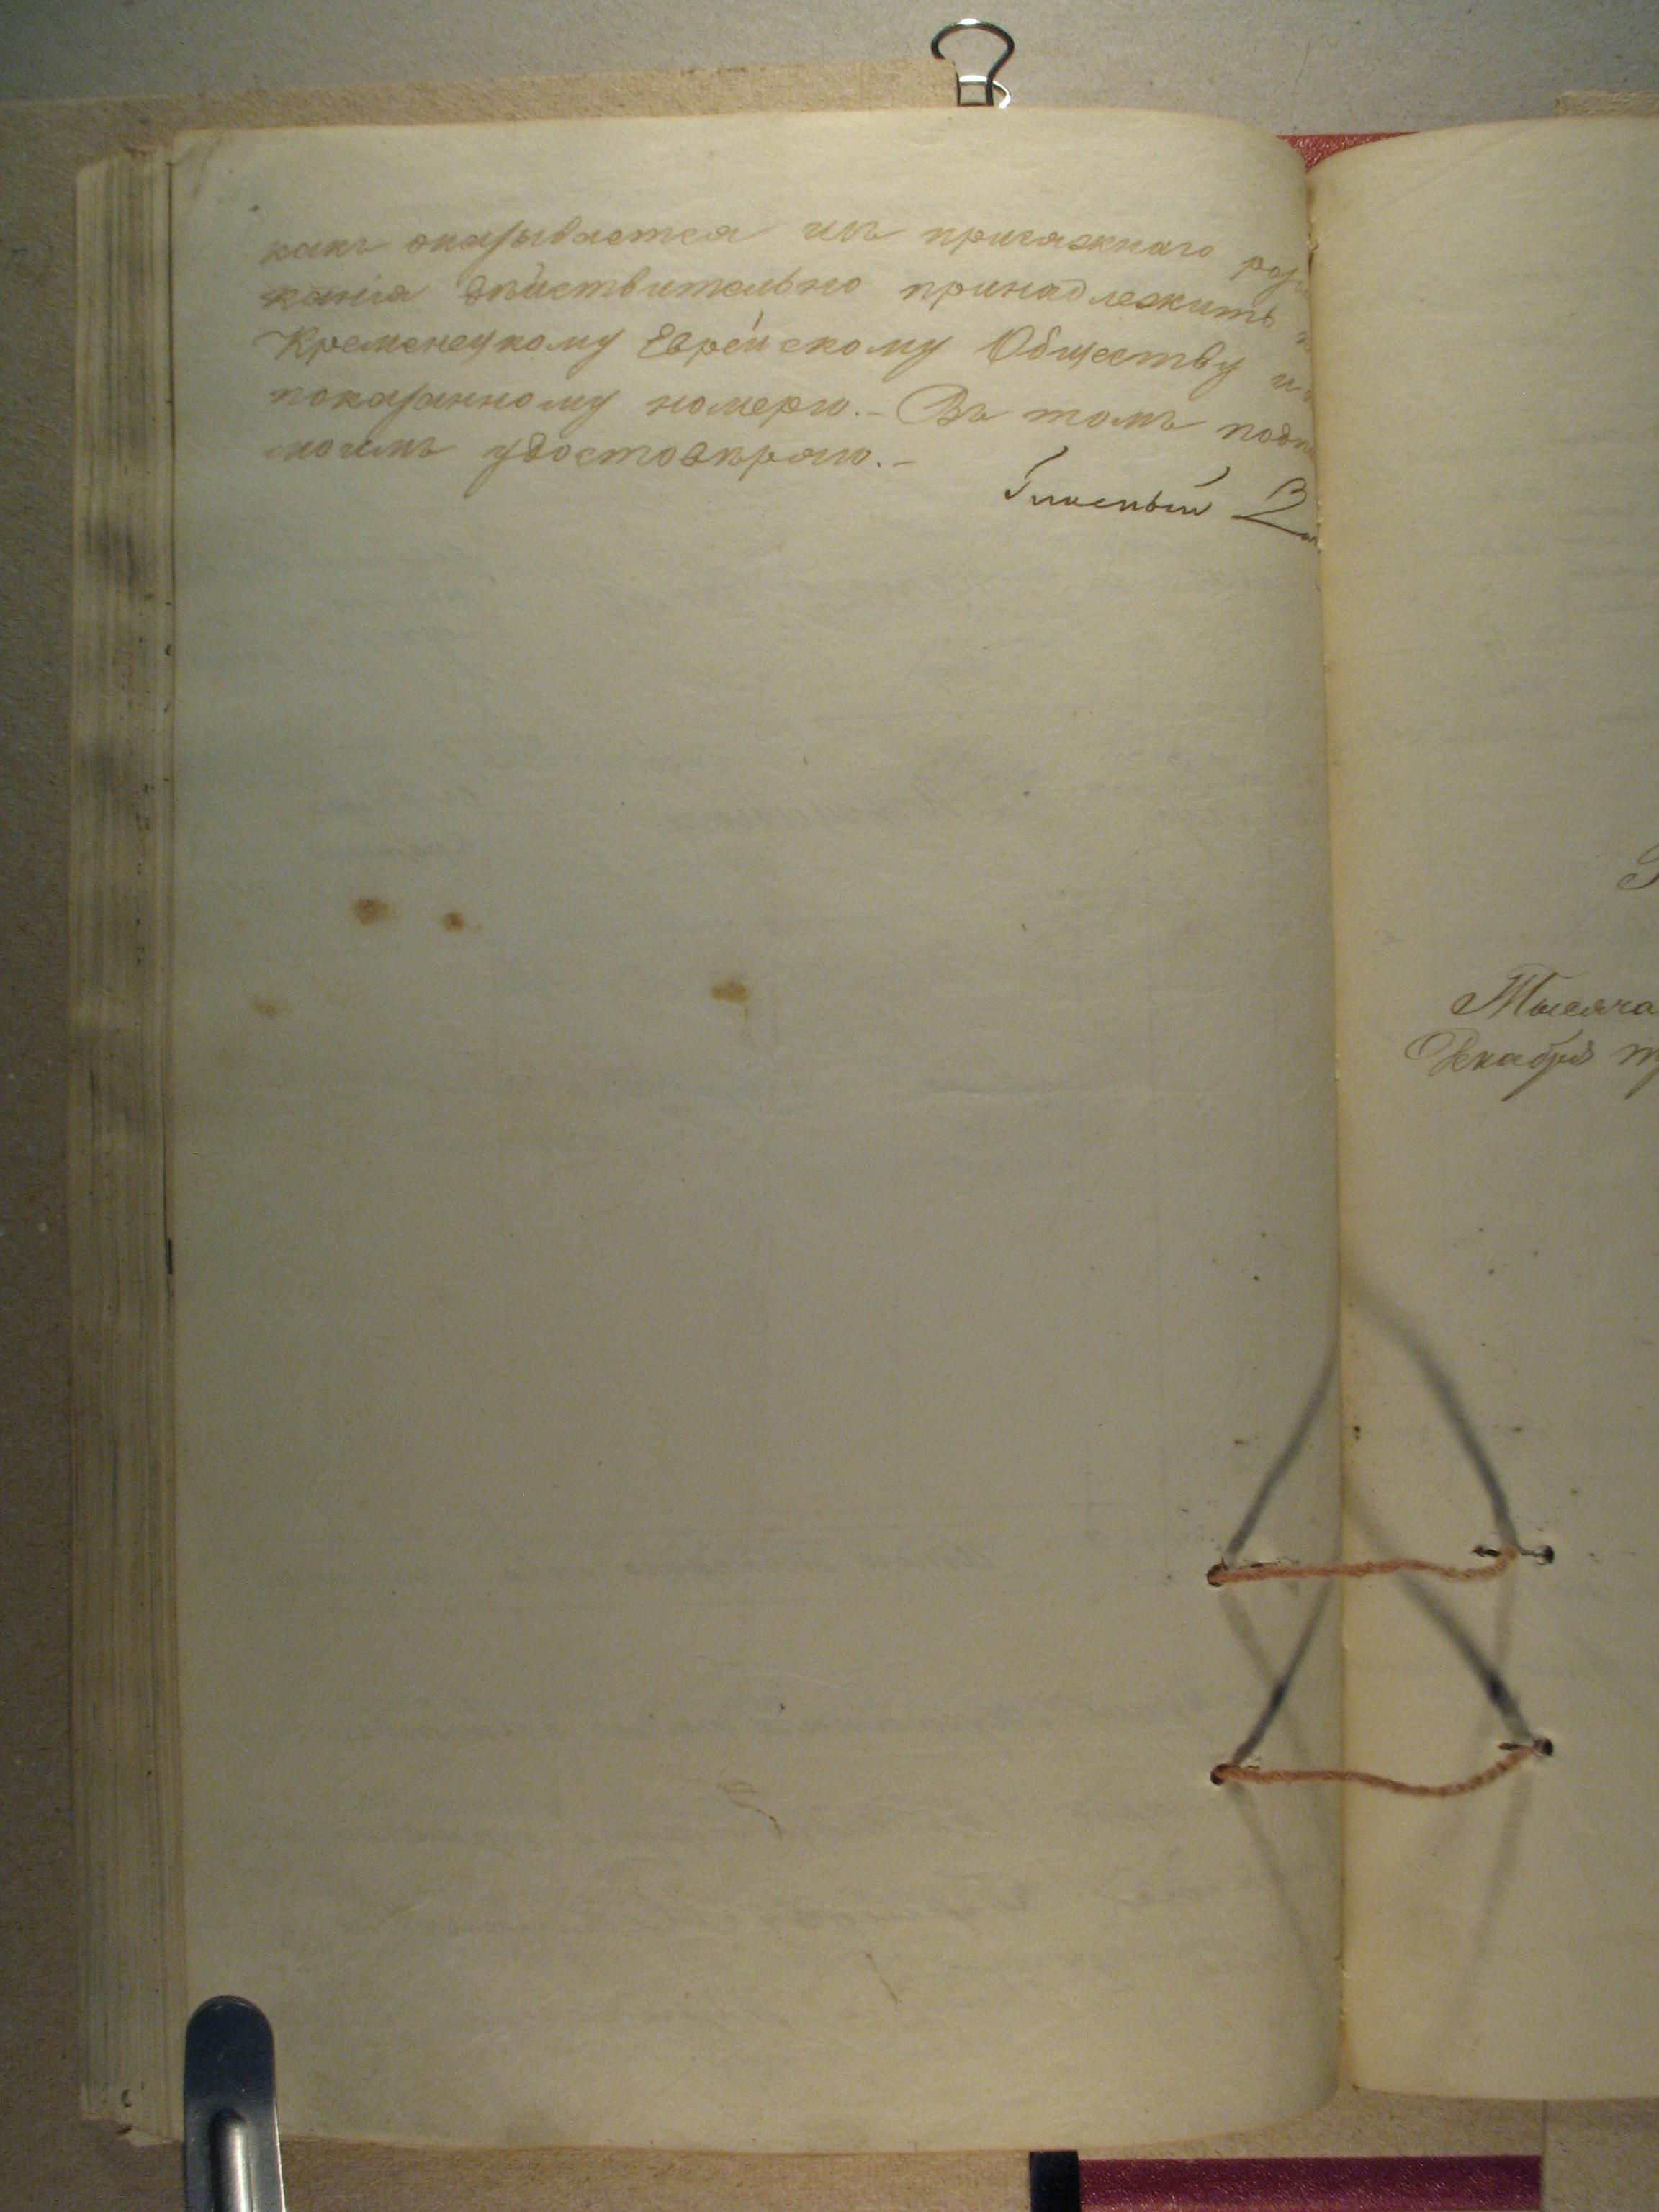 какъ оказывается изъ присяжнаго розы
канія дѣйствительно принадлежитъ
Кременецкому Еврейскому Обществу и
показанному номеру.- Въ томъ подп
моимъ удостовѣряю.-
Гласный
Тысяча
Декабря